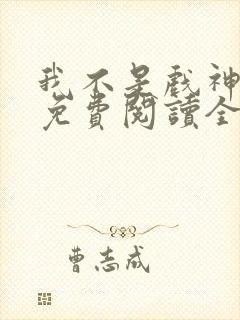 我不是戲神
免費閱讀全
曹志成